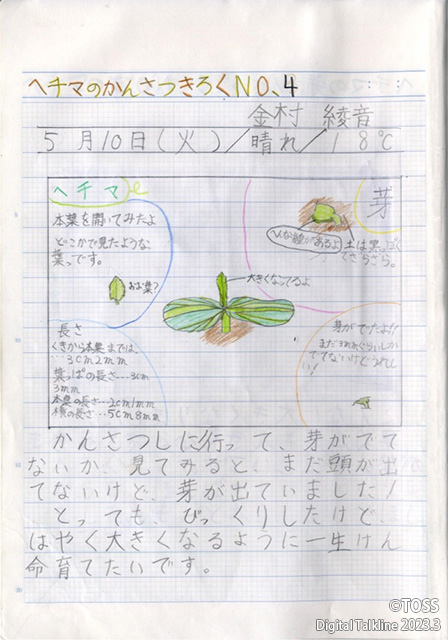 ヘチマのかんさつきろくNO、4
金村 綾音
5月10日(火)/晴れ/18℃
ヘチマ
本葉を開いてみたよ
どこかで見たような
葉っです。
おお葉?
長さ
くきから本葉までは、
3cm2mm
葉っぱの長さ…3cm
3mm
本葉の長さ…2cm1mm
横の長さ…5cm8mm
大きくなってるよ
芽
へんな線があるよ
土は黒っぽく
てさらさら。
芽がでたよ!!
まだ3mmぐらいしか
でてないけどうれし
い!
かんさつしに行って、芽がでて
ないか、見てみると、まだ頭が出
てないけど、芽が出ていました!
とっても、びっくりしたけど、
はやく大きくなるように一生けん
命育てたいです。
©TOSS
Digital Talkline 2023.3